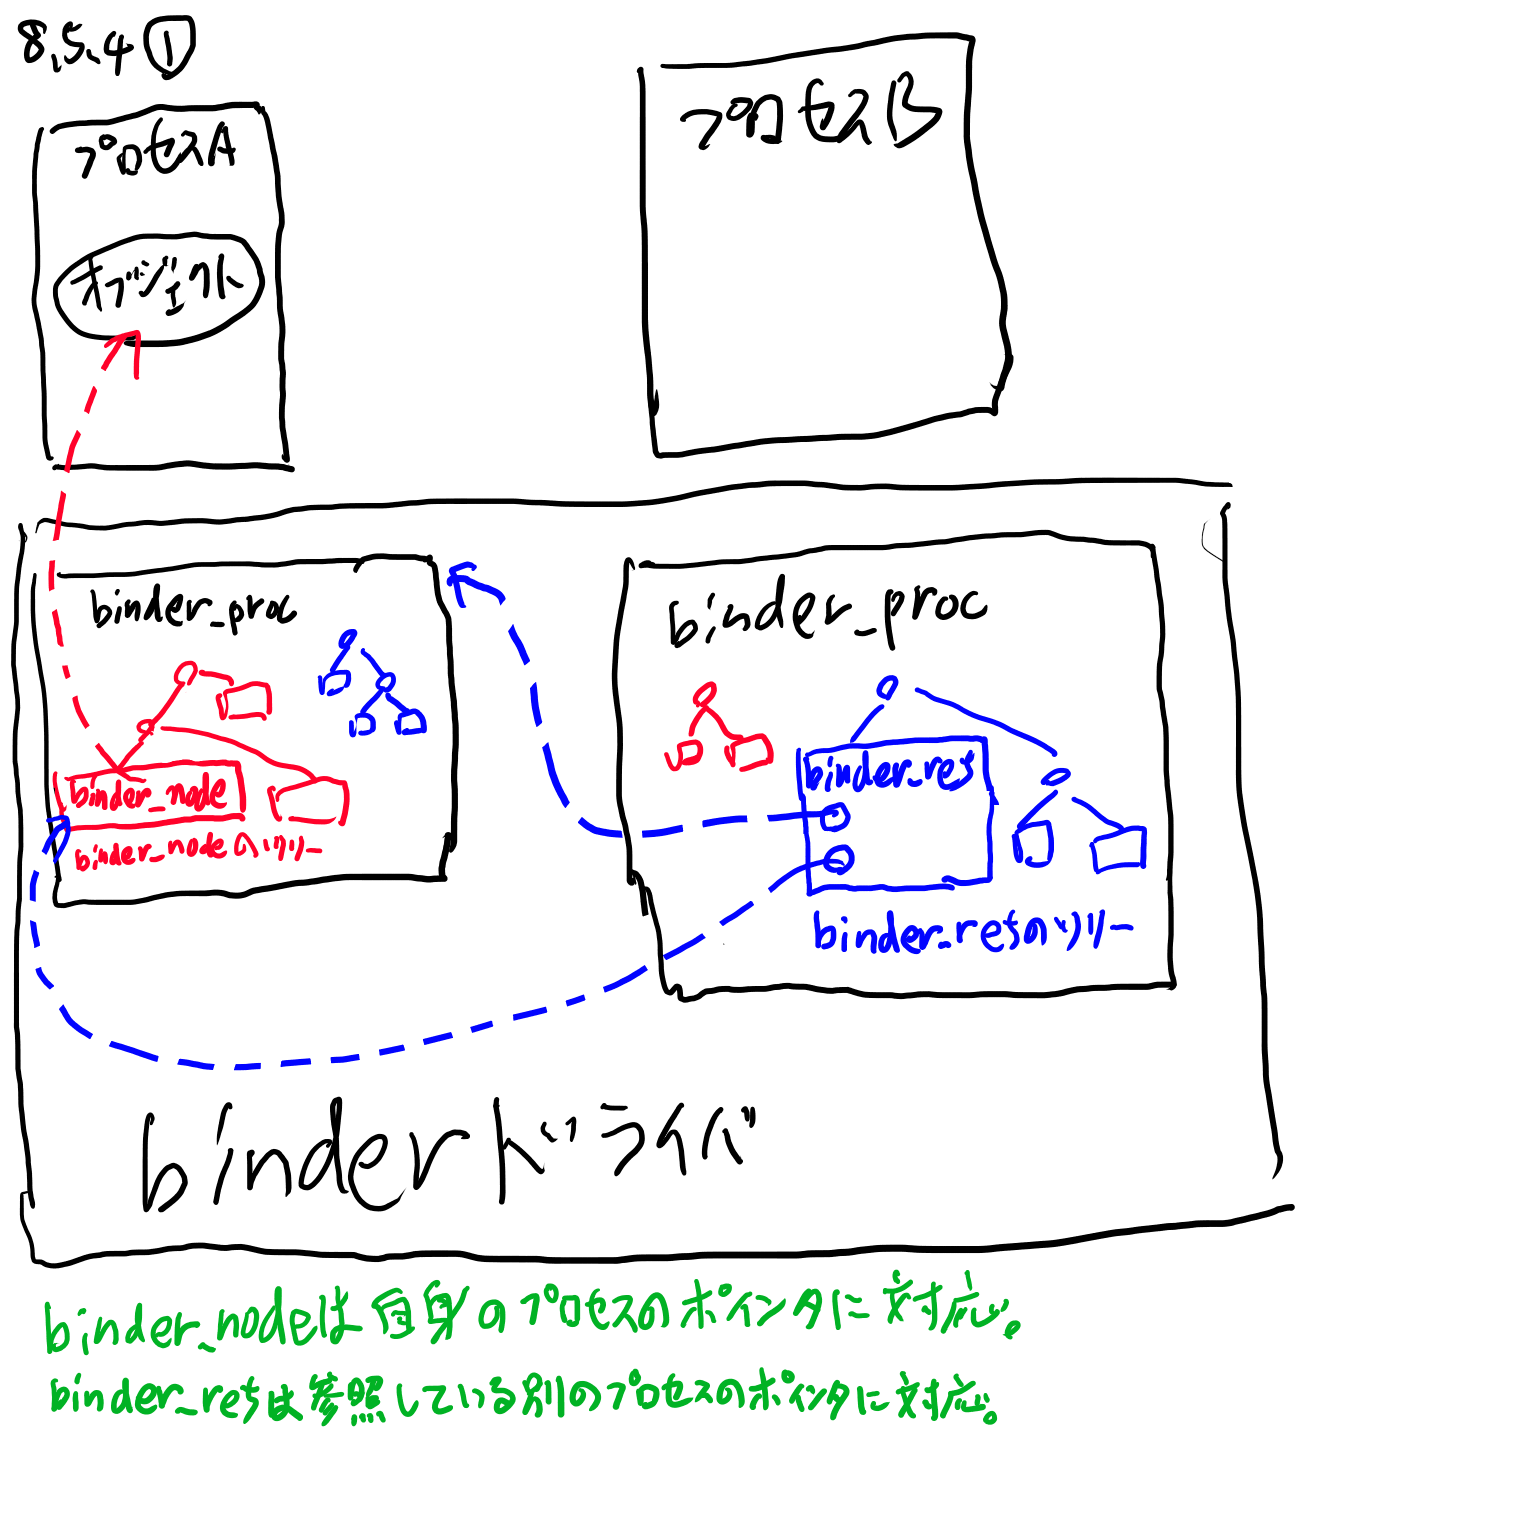 8.5.4 ①
プロセスA
プロセスB
オブジェクト
binder_proc
binder_node
binder_nodeのツリー
binder_proc
binder_ref
binder_refのツリー
binderドライバ
binder_nodeは自身のプロセスのポインタに対応。
binder_refは参照している別のプロセスのポインタに対応。